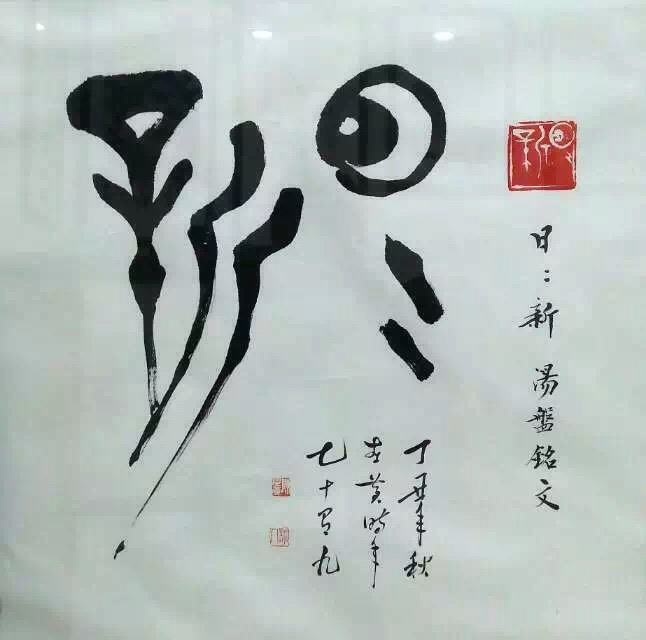 日〻新
日〻新 湯盤銘文
丁丑年秋
時年
七十有九